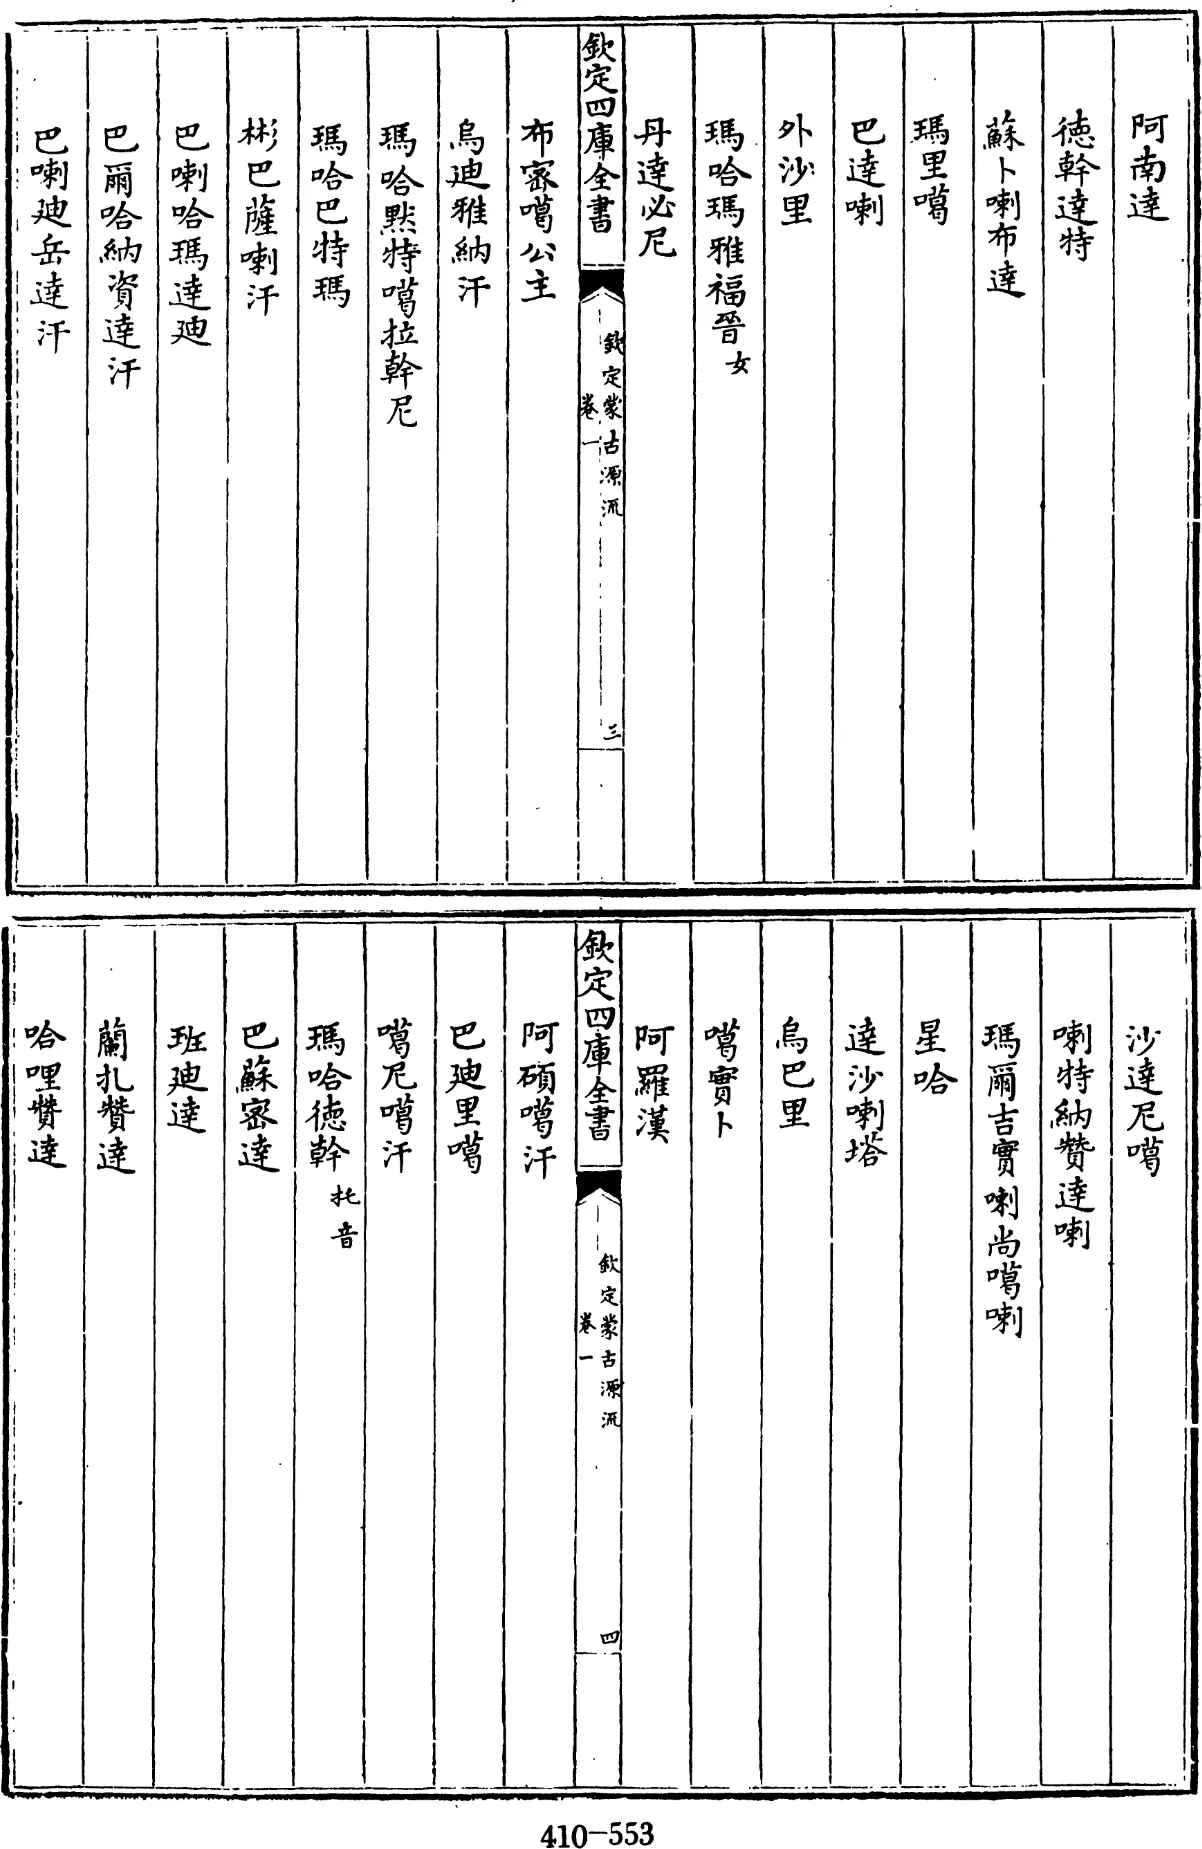 阿南達
德幹達特
蘇卜喇布達
瑪里噶
巴達喇
外沙里
瑪哈瑪雅福晉女
丹達必尼
欽定四庫全書
欽定蒙古源流
卷一
三
布密噶公主
烏迪雅納汗
瑪哈黙特噶拉幹尼
瑪哈巴特瑪
彬巴薩喇汗
巴喇哈瑪達廸
巴爾哈納資達汗
巴喇廸岳達汗
沙達尼噶
喇特納贊達喇
瑪爾吉實喇尚噶喇
星哈
達沙喇塔
烏巴里
噶實卜
阿羅漢
欽定四庫全書
欽定蒙古源流
卷一
四
阿碩噶汗
巴廸里噶
噶尼噶汗
瑪哈德幹托音
巴蘇密達
班廸達
蘭扎贊達
哈哩贊達
410-553